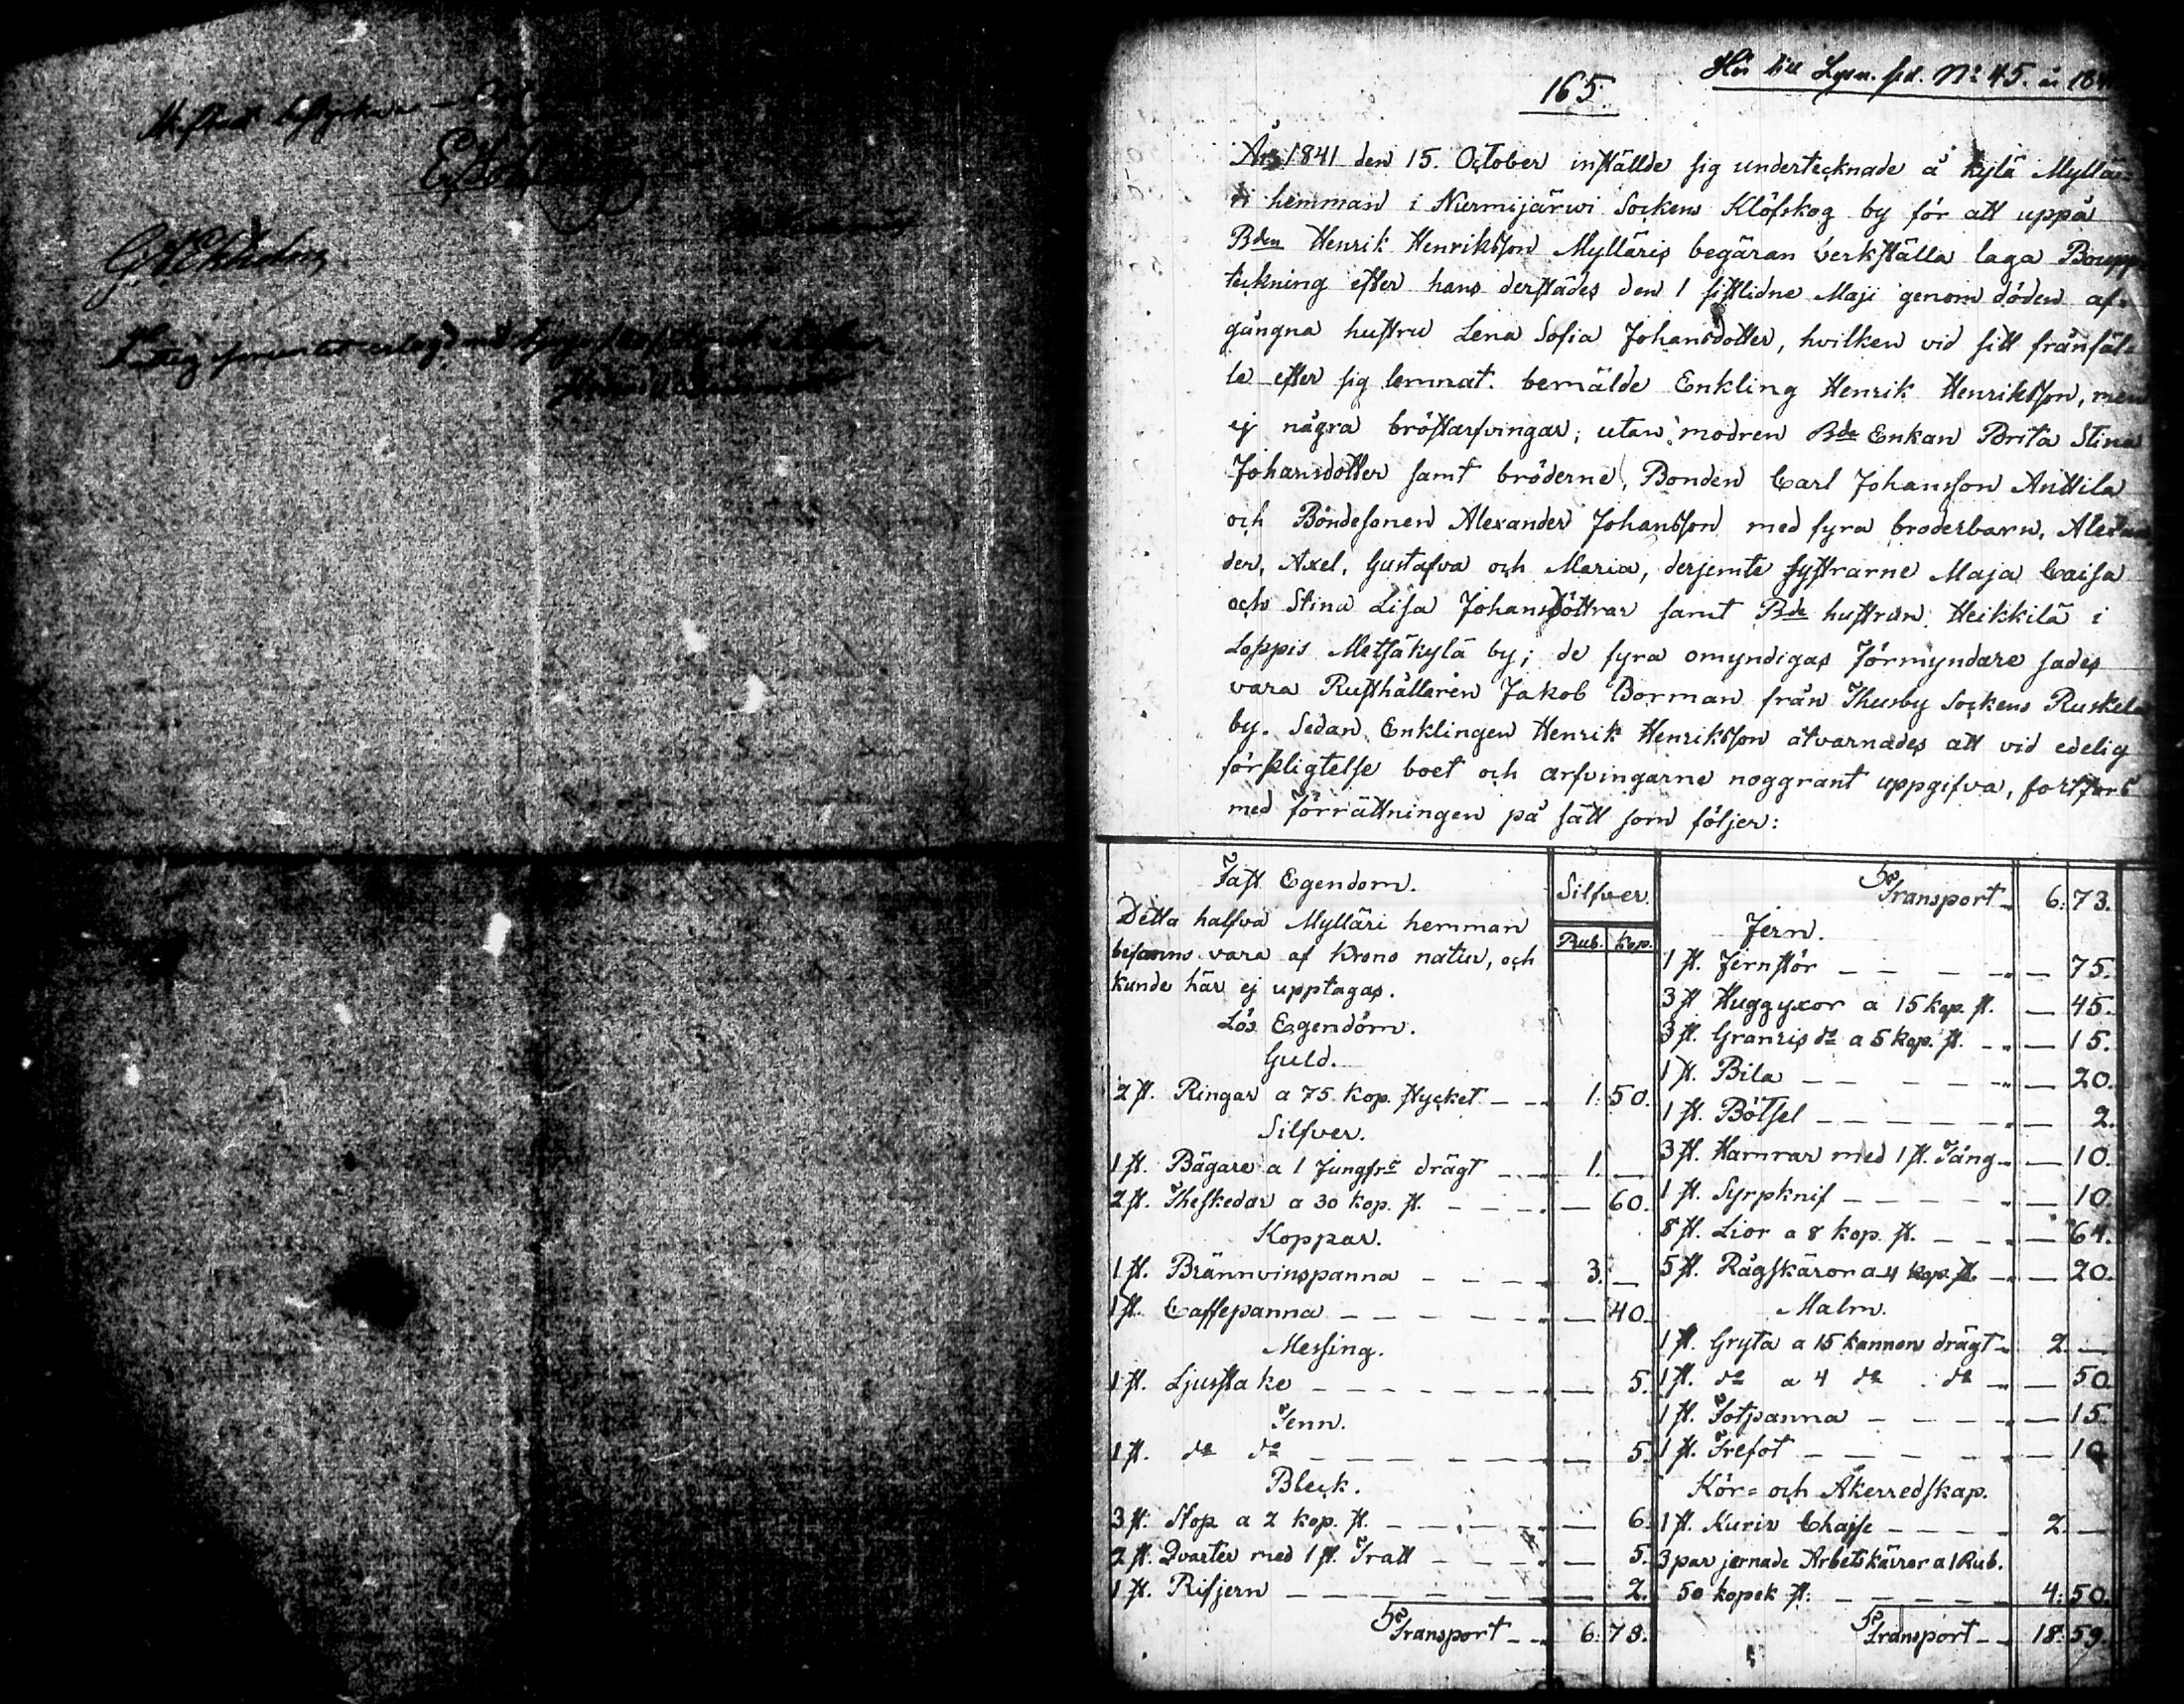 165.
Hör till Lysn. prd. No 45. år 184
År 1841 den 15. October inställde sig undertecknade å Kylä Myllä-
ri hemman i Nurmijärwi Sockens Klöfskog by för att uppå
Bden Henrik Henriksson Mylläris begäran verkställa laga Boupp-
teckning efter hans derstädes den 1 sistlidne Maji genom döden af-
gångna hustru Lena Sofia Johansdotter, hvilken vid sitt frånfäl-
le efter sig lemnat bemälde Enkling Henrik Henriksson, men
ej några bröstarfvingar; utan modren Bde Enkan Brita Stina
Johansdotter samt bröderne, Bonden Carl Johansson Anttila
och Bondesonen Alexander Johansson med fyra broderbarn, Alexan
der, Axel, Gustafva och Maria, derjemte systrarne Maja Caisa
och Stina Lisa Johansdöttrar samt Bde hustrun Heikkilä i
Loppis Metsäkylä by; de fyra omyndigas Förmyndare sades
vara Rusthållaren Jakob Borman från Thusby Sockens Ruskela
by. Sedan Enklingen Henrik Henriksson åtvarnades att vid edelig
förpligtelse boet och arfvingarne noggrant uppgifva, fortfors
med förrättningen på sätt som följer:
Fast Egendom.
Silfver.
Detta halfva Mylläri hemman
Rub. Kop.
befanns vara af Krono natur, och
kunde här ej upptagas.
Lös Egendom.
Guld.
2 st. Ringar a 75 kop. stycket - - 1: 50.
Silfver.
1 st. Bägare a 1 Jungfrs drägt - - 1. —
2 st. Theskedar a 30 kop. st. - - - — 60.
Koppar.
1 st. Brännvinspanna - - - 3. —
1 st. Caffepanna - - - — 40.
Messing.
1 st. Ljusstake - - - — 5.
Tenn.
1 st. do do - - - — 5.
Bleck.
3 st. Stop a 2 kop. st. - - - — 6.
2 st. Qvarter med 1 st. Tratt - - - — 5.
1 st. Rifjern - - - — 2.
Transport - - 6: 73.
Transport - 6: 73.
Jern.
1 st. Jernstör - - - — 75.
3 st Huggyxor a 15 kop. st. — 45.
3 st. Granris do a 5 kop. st. - — 15.
1 st. Bila - - - — 20.
1 st. Bötsel - - - — 2.
3 st. Hamrar med 1 st. Tång - — 10.
1 st. Syrpknif - - - — 10.
8 st. Lior a 8 kop. st. - - — 64.
5 st. Rågskäror a 4 kop. st. - — 20.
Malm.
1 st. Gryta a 15 kannors drägt - 2. —
1 st. do a 4 do do - — 50
1 st. Fotpanna - - - — 15.
1 st. Trefot - - - — 10
Kör- och Åkerredskap.
1 st. Kurir Chaise - - - 2. —
3 par jernade Arbetskärror a 1 Rub.
50 kopek st. - - - 4: 50.
Transport - - 18: 59.